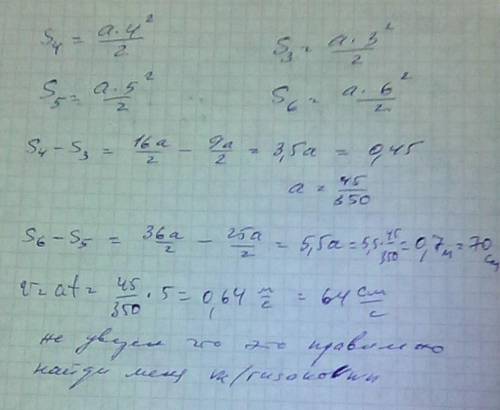 S₄ = a·4²/2 S₃ = a·3²/2
S₅ = a·5²/2 S₆ = a·6²/2
S₄ - S₃ = 16a/2 - 9a/2 = 3,5a = 0,45
a = 45/350
S₆ - S₅ = 36a/2 - 25a/2 = 5,5a = 5,5·45/350 = 0,7м = 70 см
v = at = 45/350 · 5 = 0,64 м/с = 64 см/с
не уверен что это правильно
найди меня вк/